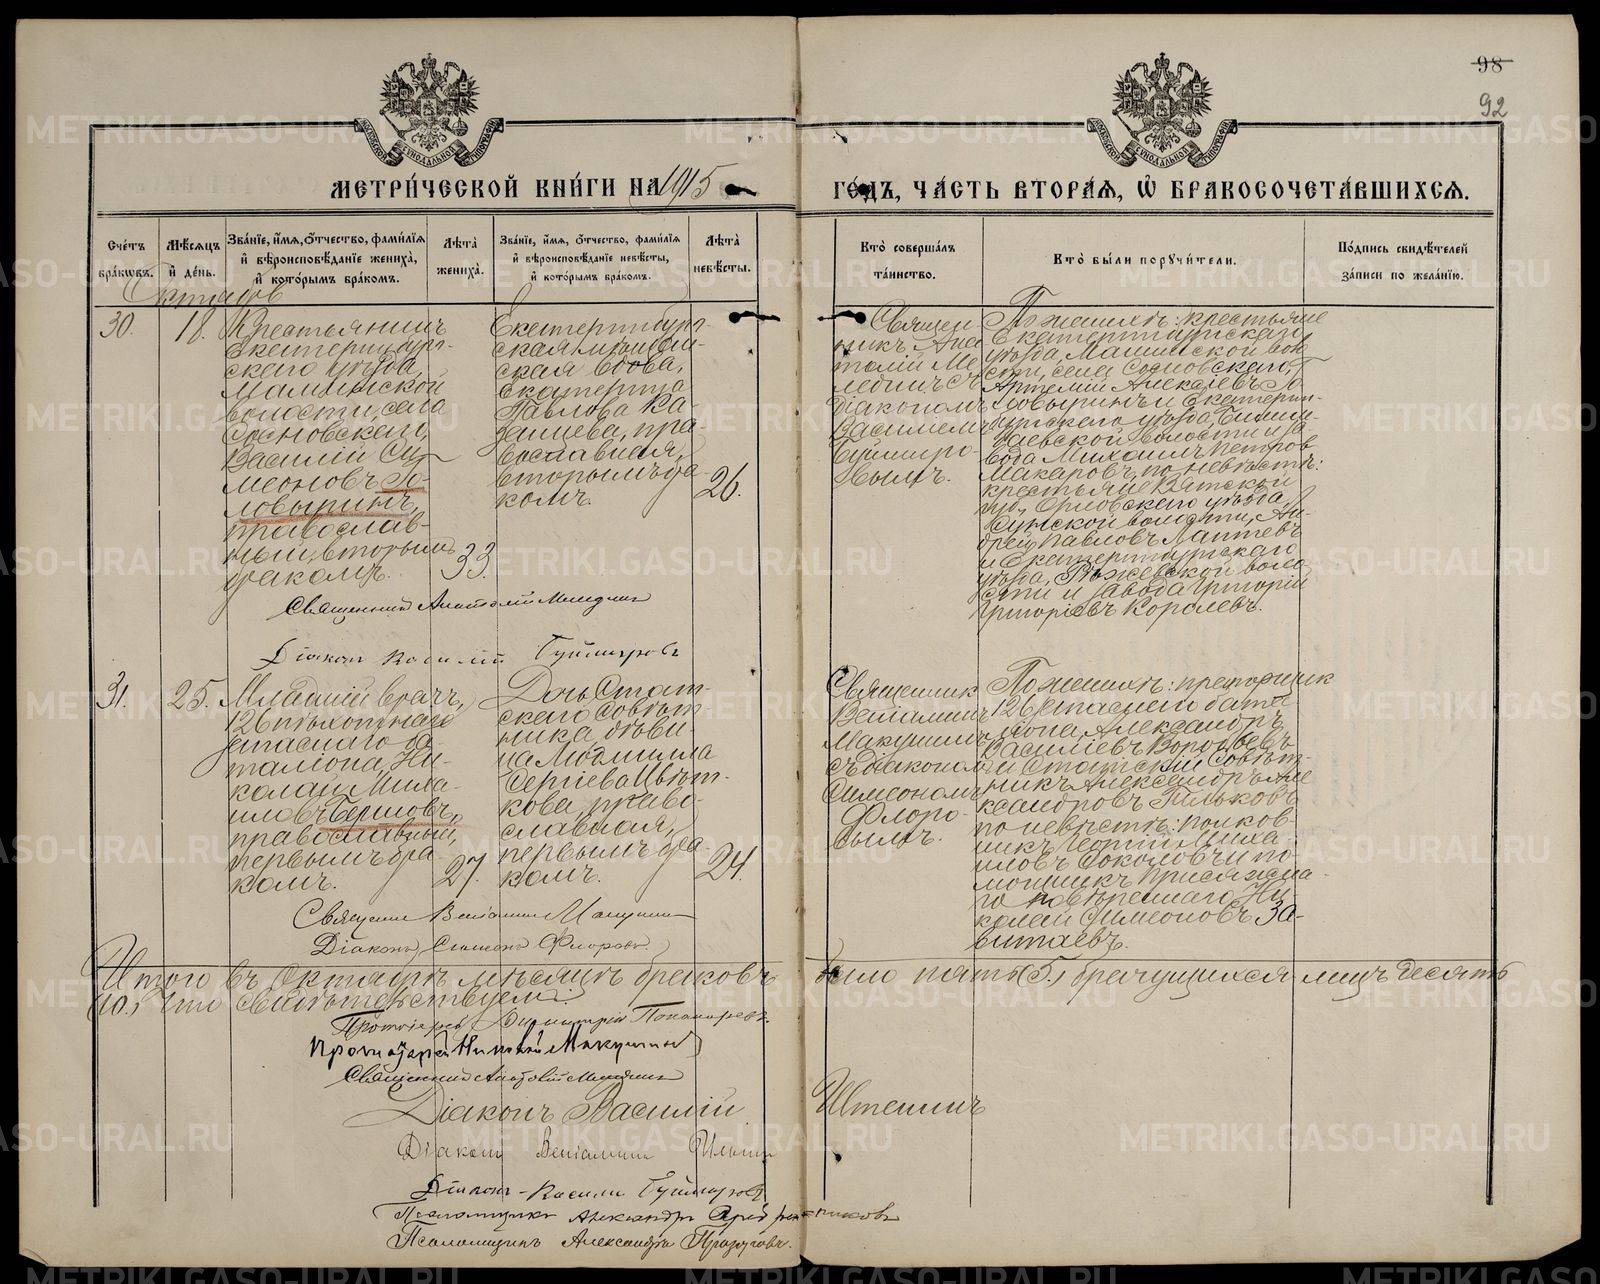 98
92
МОСКОВСКОЙ СУНОДАЛЬНОЙ ТИПОГРАФІИ
МОСКОВСКОЙ СУНОДАЛЬНОЙ ТИПОГРАФІИ
МЕТРИ́ЧЕСКОЙ КНИ́ГИ НА 1915 ГО́ДЪ, ЧА́СТЬ ВТОРА́Я, Ѡ҆ БРАКОСОЧЕТА́ВШИХСЯ.
Сче́тъ бра́ковъ.
Мѣ́сяцъ и҆ де́нь.
Зва́нїе, и҆́мя, ѻ҆́тчество, фами́лїя и҆ вѣроисповѣ́данїе жениха̀, и҆ кото́рымъ бра́комъ.
Лѣта̀ жениха̀.
Зва́нїе, и҆́мя, ѻ҆́тчество, фами́лїя и҆ вѣроисповѣ́данїе невѣ́сты, и҆ кото́рымъ бра́комъ.
Лѣта̀ невѣ́сты.
Кто̀ соверша́лъ та́инство.
Кто̀ бы́ли порꙋчи́тели.
По́дпись свидѣ́телей за́писи по жела́нїю.
Октябрь
30.
18.
Крестьянинъ
Екатеринбург-
скаго уѣзда,
Маминской
волости, села
Сосновскаго,
Василій Си-
меоновъ Го-
ловыринъ,
православ-
ный, вторымъ
бракомъ.
33.
Екатеринбург-
ская мѣщан-
ская вдова,
Екатерина
Павлова Ка-
занцева, пра-
вославная,
вторымъ бра-
комъ.
26.
Священ-
никъ Ана
толій Ме
ледин съ
діакономъ
Василіемъ
Буйміро-
вымъ.
По женихѣ: крестьяне
Екатеринбургскаго
уѣзда, Маминской воло
сти, села Сосновскаго,
Артемій Алексѣевъ Го
ловыринъ и Екатерин-
бургскаго уѣзда, Билим-
баевской волости и за-
вода Михаилъ Петровъ
Макаровъ, по невѣстѣ:
крестьяне Вятской
губ., Орловскаго уѣзда,
волости, Ан-
дрей Павловъ Лаптевъ
и Екатеринбургскаго
уѣзда, Режевской воло
сти и завода Григорій
Григорьевъ Королевъ.
Священникъ Анатолій Меледин
Діаконъ Василій Буйміровъ
31.
25.
Младшій врачъ,
126 пѣхотнаго
запаснаго ба-
таліона, Ни-
колай Миха-
иловъ Берновъ,
православный,
первымъ бра-
комъ.
27.
Дочь Стат-
скаго Совѣт-
ника, дѣви-
ца Людмила
Сергіева Цвѣт-
кова, право-
славная,
первымъ бра-
комъ.
24.
Священник
Веніаминъ
Макушинъ
съ діакономъ
Симеономъ
Флоро-
вымъ.
По женихѣ: прапорщик
126 запаснаго бата
ліона Александръ
Василіевъ Воробьевъ
и Статскій Совѣт-
никъ Александръ Але
ксандровъ
по невѣстѣ: полков-
никъ Георгій Миха
иловъ Соколовъ и по-
мощникъ присяжна-
го повѣреннаго Ни-
колай Симеоновъ За-
витаевъ.
Священник Веніамин Макушин
Діаконъ Симеонъ Флоровъ.
Итого въ Октябрѣ мѣсяцѣ браковъ было пять (5.) брачущихся лицъ десять
(10.) Что свидѣтельствуем:
Протоіерей Димитрій Пономаревъ.
Протоіерей Николай Макушинъ
Священникъ Анатолій Меледин
Діаконъ Василій Иттенинъ
Діакон Веніамин Ильин
Діаконъ Василій Буйміровъ
Псаломщикъ Александръ
Псаломщикъ Александръ